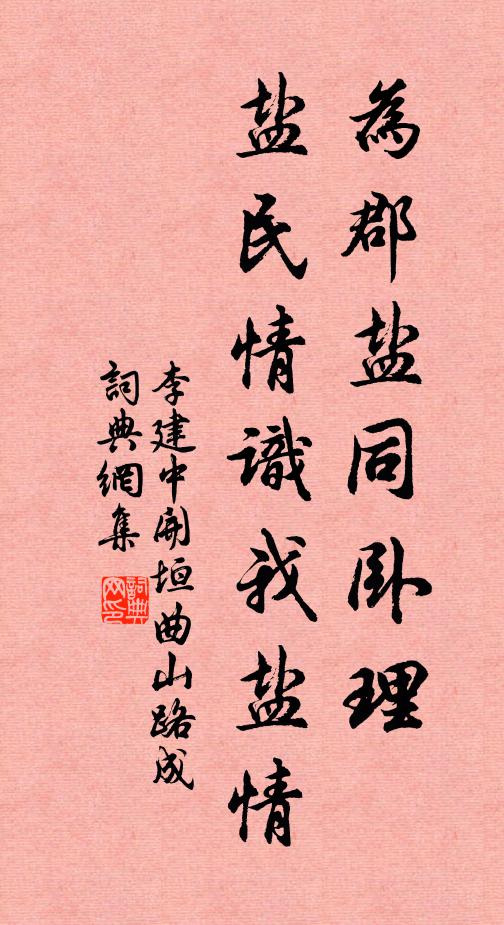 為郡盐同卧理
盐民情識我盐情
李建中開垣曲山路成
詞典網集
詞典網印